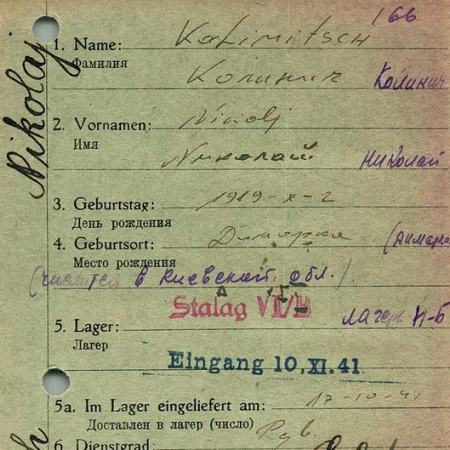 166
1. Name: Kalinitsch
Фамилия
Колинич Колинич
Nikolaj
2. Vornamen:
Имя
Николай Николай
3. Geburtstag: 1919-X-2
День рождения
4. Geburtsort:
Место рождения
в Киевской обл.)
Stalag VI/B
5. Lager: лагерь
Лагерь
Eingang 10.XI.41
5a. Im Lager eingeliefert am: 17-10-41
Доставлен в лагерь (число)
6. Dienstgrad: